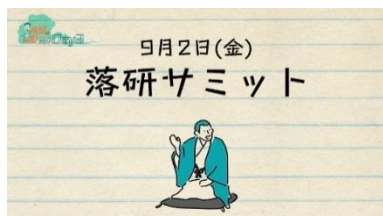 9月2日(金)
落研サミット